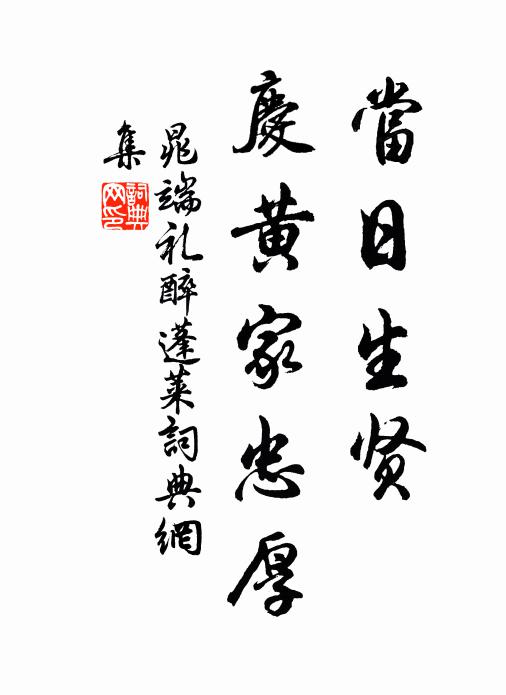 當日生贤
慶黄家忠厚
晁端礼醉蓬莱詞典網
集
詞典网印